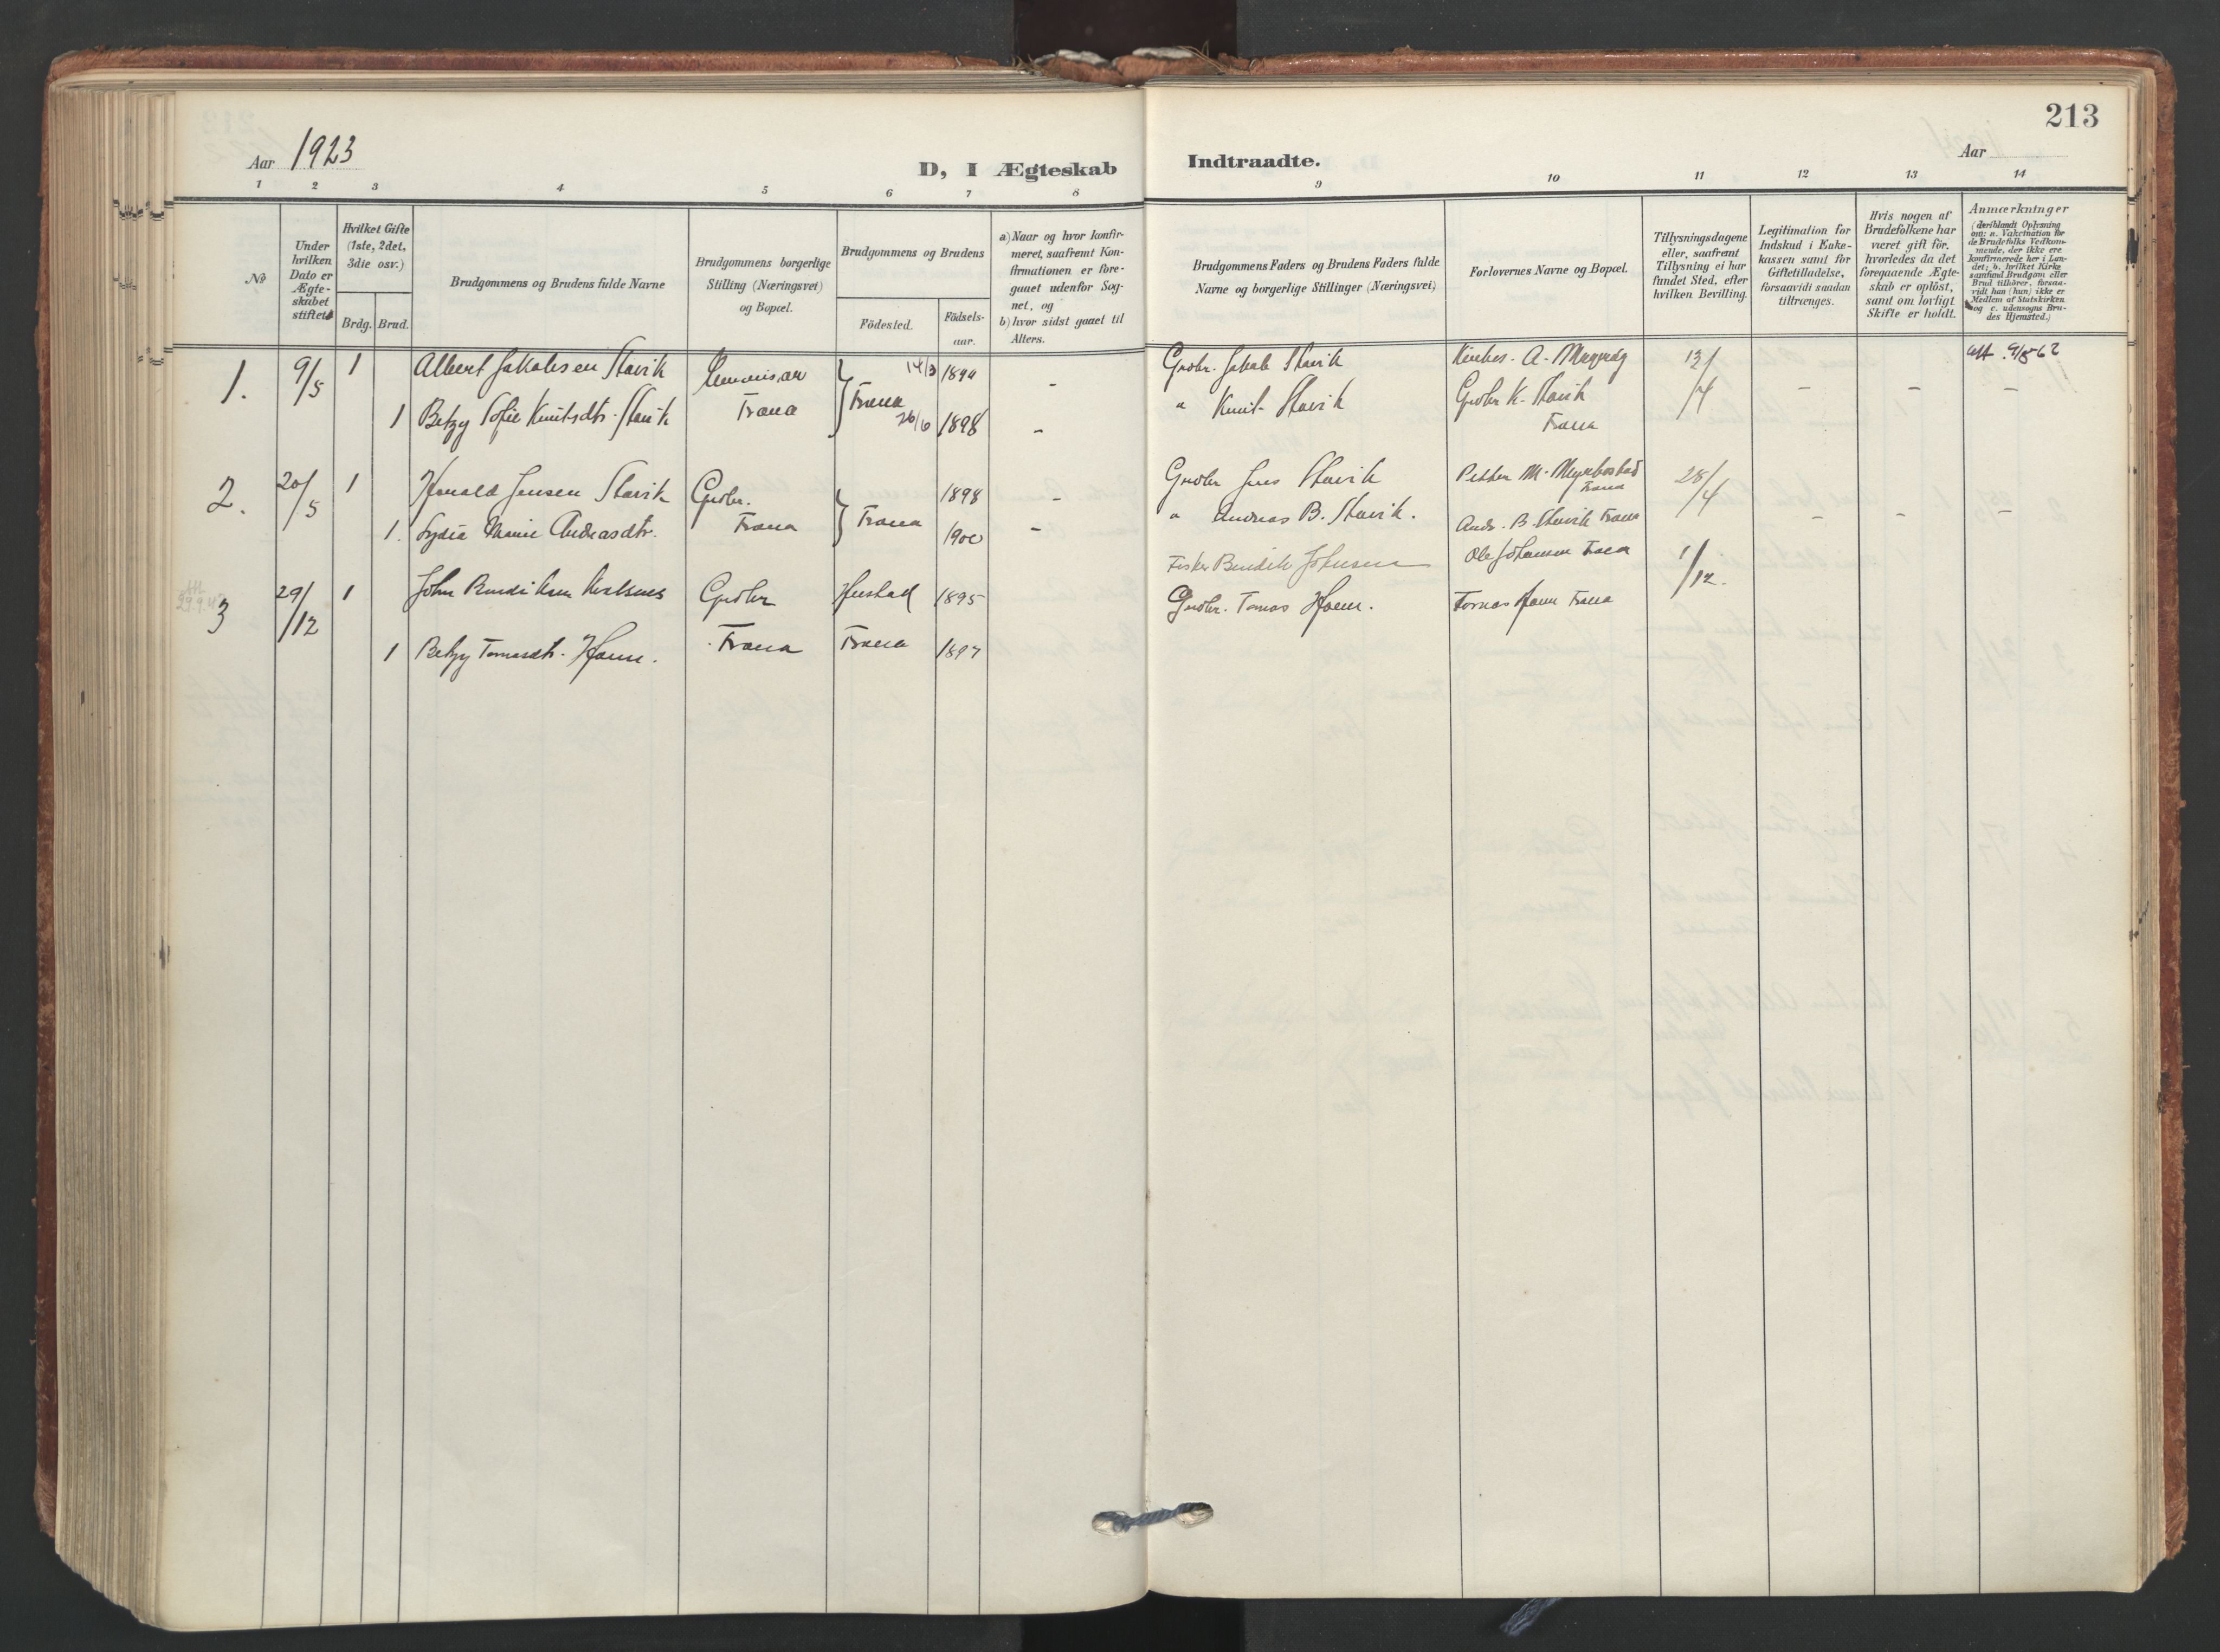 213
Aar 1923
D, I Ægteskab Indtraadte.
Aar
1 2 3 4 5 6 7 8 9 10 11 12 13 14
No
Under
hvilken
Dato er
Ægte-
skabet
stiftet
Hvilket Gifte
(1ste, 2det,
3die osv.)
Brdg. Brud.
Brudgommens og Brudens fulde Navne
Brudgommens borgerlige
Stilling (Næringsvei)
og Bopæl.
Brudgommens og Brudens
Födested.
Födsels-
aar.
a) Naar og hvor konfir-
meret, saafremt Kon-
firmationen er fore-
gaaet udenfor Sog-
net, og
b) hvor sidst gaaet til
Alters.
Brudgommens Faders og Brudens Faders fulde
Navne og borgerlige Stillinger (Næringsvei)
Forlovernes Navne og Bopæl.
Tillysningsdagene
eller, saafremt
Tillysning ei har
fundet Sted, efter
hvilken Bevilling.
Legitimation for
Indskud i Enke-
kassen samt for
Giftetilladelse,
forsaavidt saadan
tiltrænges.
Hvis nogen af
Brudefolkene har
været gift för,
hvorledes da det
foregaaende Ægte-
skab er oplöst,
samt om lovligt
Skifte er holdt.
Anmærkninger
(deriblandt Oplysning
om: a. Vakcination for
de Brudefolks Vedkom-
mende, der ikke ere
konfirmerede her i Lan-
det; b. hvilket Kirke
samfund Brudgom eller
Brud tilhörer, forsaa-
vidt han (hun) ikke er
Medlem af Statskirken
og c. udensogns Bru-
des Hjemsted.)
1. 9/5 1 Albert Jakobsen Stavik 14/3 1894 - Grdbr. Jakob Stavik A. 13/4 - - - att. 9/8 62
1 Betzy Sofie Knutsdtr. Stavik Fræna } Fræna 26/6 1898 - " Knut Stavik Grdbr K. Stavik
Fræna
2. 20/5 1 Harald Jensen Stavik Grdbr. 1898 - Grdbr Jens Stavik Petter M. Myrbostad
Fræna 28/4
1. Lydia Marie Andreasdtr. Fræna } Fræna 1900 - " Andreas B. Stavik. Andr. B. Stavik Fræna - - -
3 29/12 1 John Grdbr Hustad 1895 Fisker Bendik Johnsen Ole Johansen Fræna 1/12.
1 Betzy Tomasdtr. Haem. Fræna Fræna 1897 Grdbr. Tomas Haem. Tomas Haem Fræna